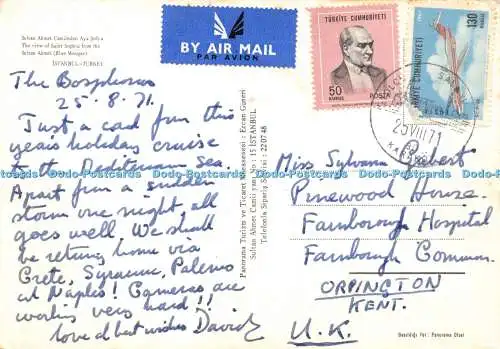 Sultan Ahmet Camiinden Aya Sofia
The view of Saint Sophia from the
Sultan Ahmet (Blue Mosque)
İSTANBUL - TURKEY
The Bosphorus
25.8.71.
Just a card from this
years holiday cruise
to the Mediterranean Sea.
Apart from a sudden
storm one night all
goes well. We shall
be returning home via
Crete, Syracuse, Palermo
and Naples! Cameras are
working very hard!!
Love & best wishes David
BY AIR MAIL
PAR AVION
TÜRKİYE CUMHURİYETİ
50
KURUŞ
POSTA
TÜRKİYE CUMHURİYETİ
130
KURUŞ
25 VIII 71
Panorama Turizm ve Ticaret Müessesesi : Ercan Güneri
Sultan Ahmet Camii yanı No: 15 İSTANBUL
Telefonla Sipariş Servisi : 22 07 48
Miss Sylvana
Pinewood House.
Farnborough Hospital
Farnborough Common.
ORPINGTON
KENT.
U.K.
Basıldığı Yer : Panorama Ofset
Dodo-Postcards